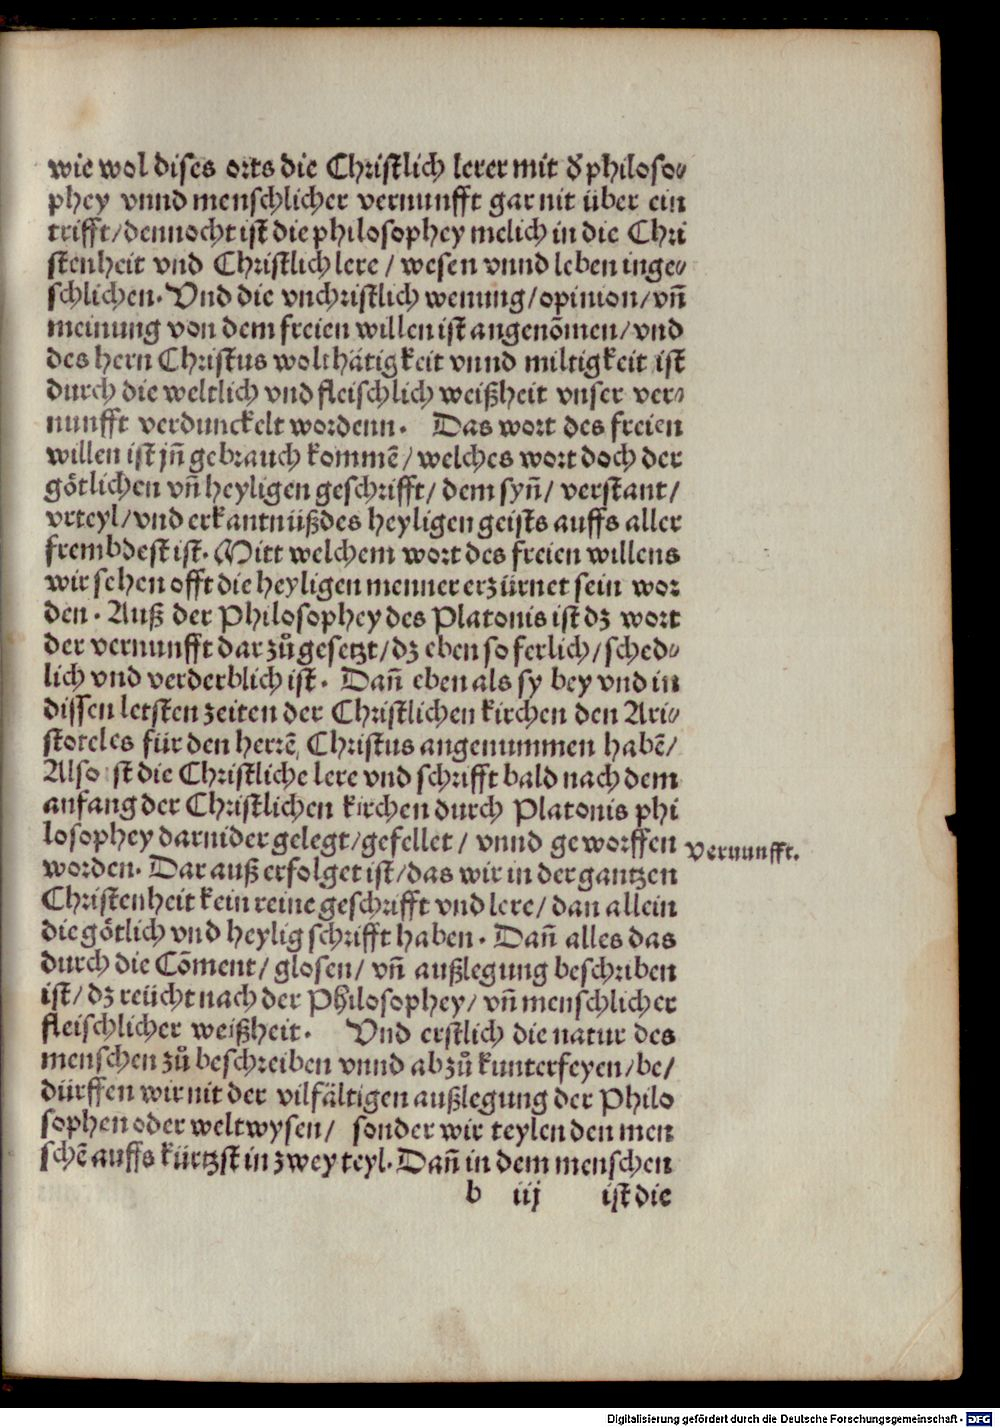 wie wol dises orts die Christlich lerer mit d̕ philoso⸗
phey vnnd menschlicher vernunfft gar nit über ein
trifft/dennocht ist die philosophey melich in die Chri
stenheit vnd Christlich lere / wesen vnnd leben inge⸗
schlichen. Vnd die vnchristlich wenung/opinion/vn̄
meinung von dem freien willen ist angenōmen/vnd
des hern Christus wolthätigkeit vnnd miltigkeit ist
durch die weltlich vnd fleischlich weißheit vnser ver⸗
nunfft verdunckelt wordenn. Das wort des freien
willen ist jn̄ gebrauch kommē/welches wort doch der
götlichen vn̄ heyligen geschrifft/ dem syn̄/ verstant/
vrteyl/vnd erkantnüß des heyligen geists auffs aller
frembdest ist. Mitt welchem wort des freien willens
wir sehen offt die heyligen menner erzürnet sein wor
den. Auß der Philosophey des Platonis ist dz wort
der vernunfft dar zů gesetzt/dz eben so ferlich/sched⸗
lich vnd verderblich ist. Dan̄ eben als sy bey vnd in
dissen letsten zeiten der Christlichen kirchen den Ari⸗
stoteles für den herrē Christus angenummen habē/
Also ist die Christliche lere vnd schrifft bald nach dem
anfang der Christlichen kirchen durch Platonis phi
losophey darnider gelegt/gefellet/ vnnd geworffen
worden. Dar auß erfolget ist/das wir in der gantzen
Christenheit kein reine geschrifft vnd lere/dan allein
die götlich vnd heylig schrifft haben. Dan̄ alles das
durch die Cōment/glosen/ vn̄ außlegung beschriben
ist/dz reücht nach der Philosophey/vn̄ menschlicher
fleischlicher weißheit. Vnd erstlich die natur des
menschen zů beschreiben vnnd ab zů kunterfeyen/be/
dürffen wir nit der vilfältigen außlegung der Philo
sophen oder weltwysen/ sonder wir teylen den men
schē auffs kürtzst in zwey teyl. Dan̄ in dem menschen
b iij ist die
vernunfft.
Digitalisierung gefördert durch die Deutsche Forschungsgemeinschaft - DFG